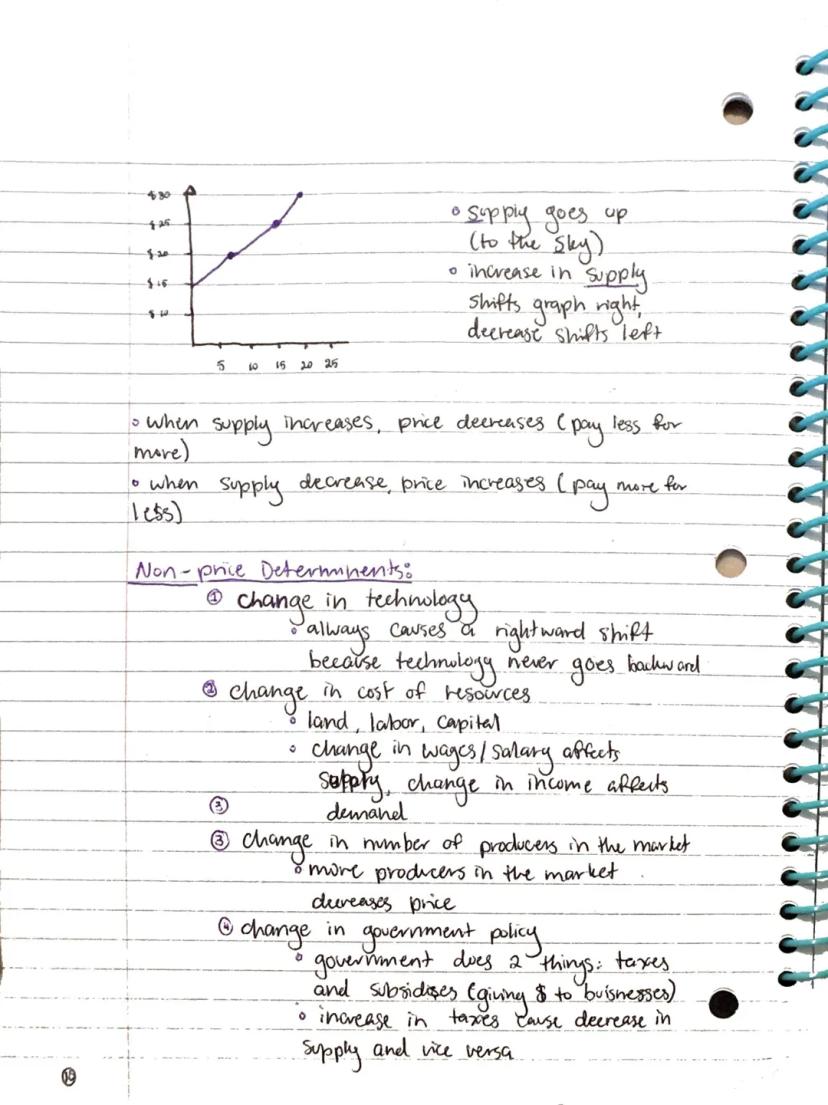 $30
$25
$20
$15
$10
5 10 15 20 25
◦ supply goes up
(to the sky)
◦ increase in supply
shifts graph right,
decrease shifts left
◦ when supply increases, price decreases (pay less for
more)
◦ when supply decrease, price increases (pay more for
less)
Non-price Determinents:
① change in technology
◦ always causes a rightward shift
because technology never goes backward
② change in cost of resources
◦ land, labor, capital
◦ change in wages/salary affects
supply, change in income affects
③
demand
③ change in number of producers in the market
◦ more producers in the market
decreases price
④ change in government policy
◦ government does 2 things: taxes
and subsidises (giving $ to buisnesses)
◦ increase in taxes cause decrease in
supply and vice versa